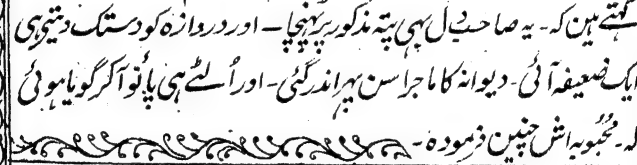 کہتے ہین کہ۔ یہ صاحب دل بہی پتہ مذکور پر پہنچا۔ اور دروازہ کو دستک دیتی ہی
ایک ضعیفہ آئی۔ دیوانہ کا ماجرا سن پہر اندر گئی۔ اور اُلٹے ہی پانْو آکر گویا ہوئی
کہ۔ محبُوبہ اش چنین فرمودہ۔